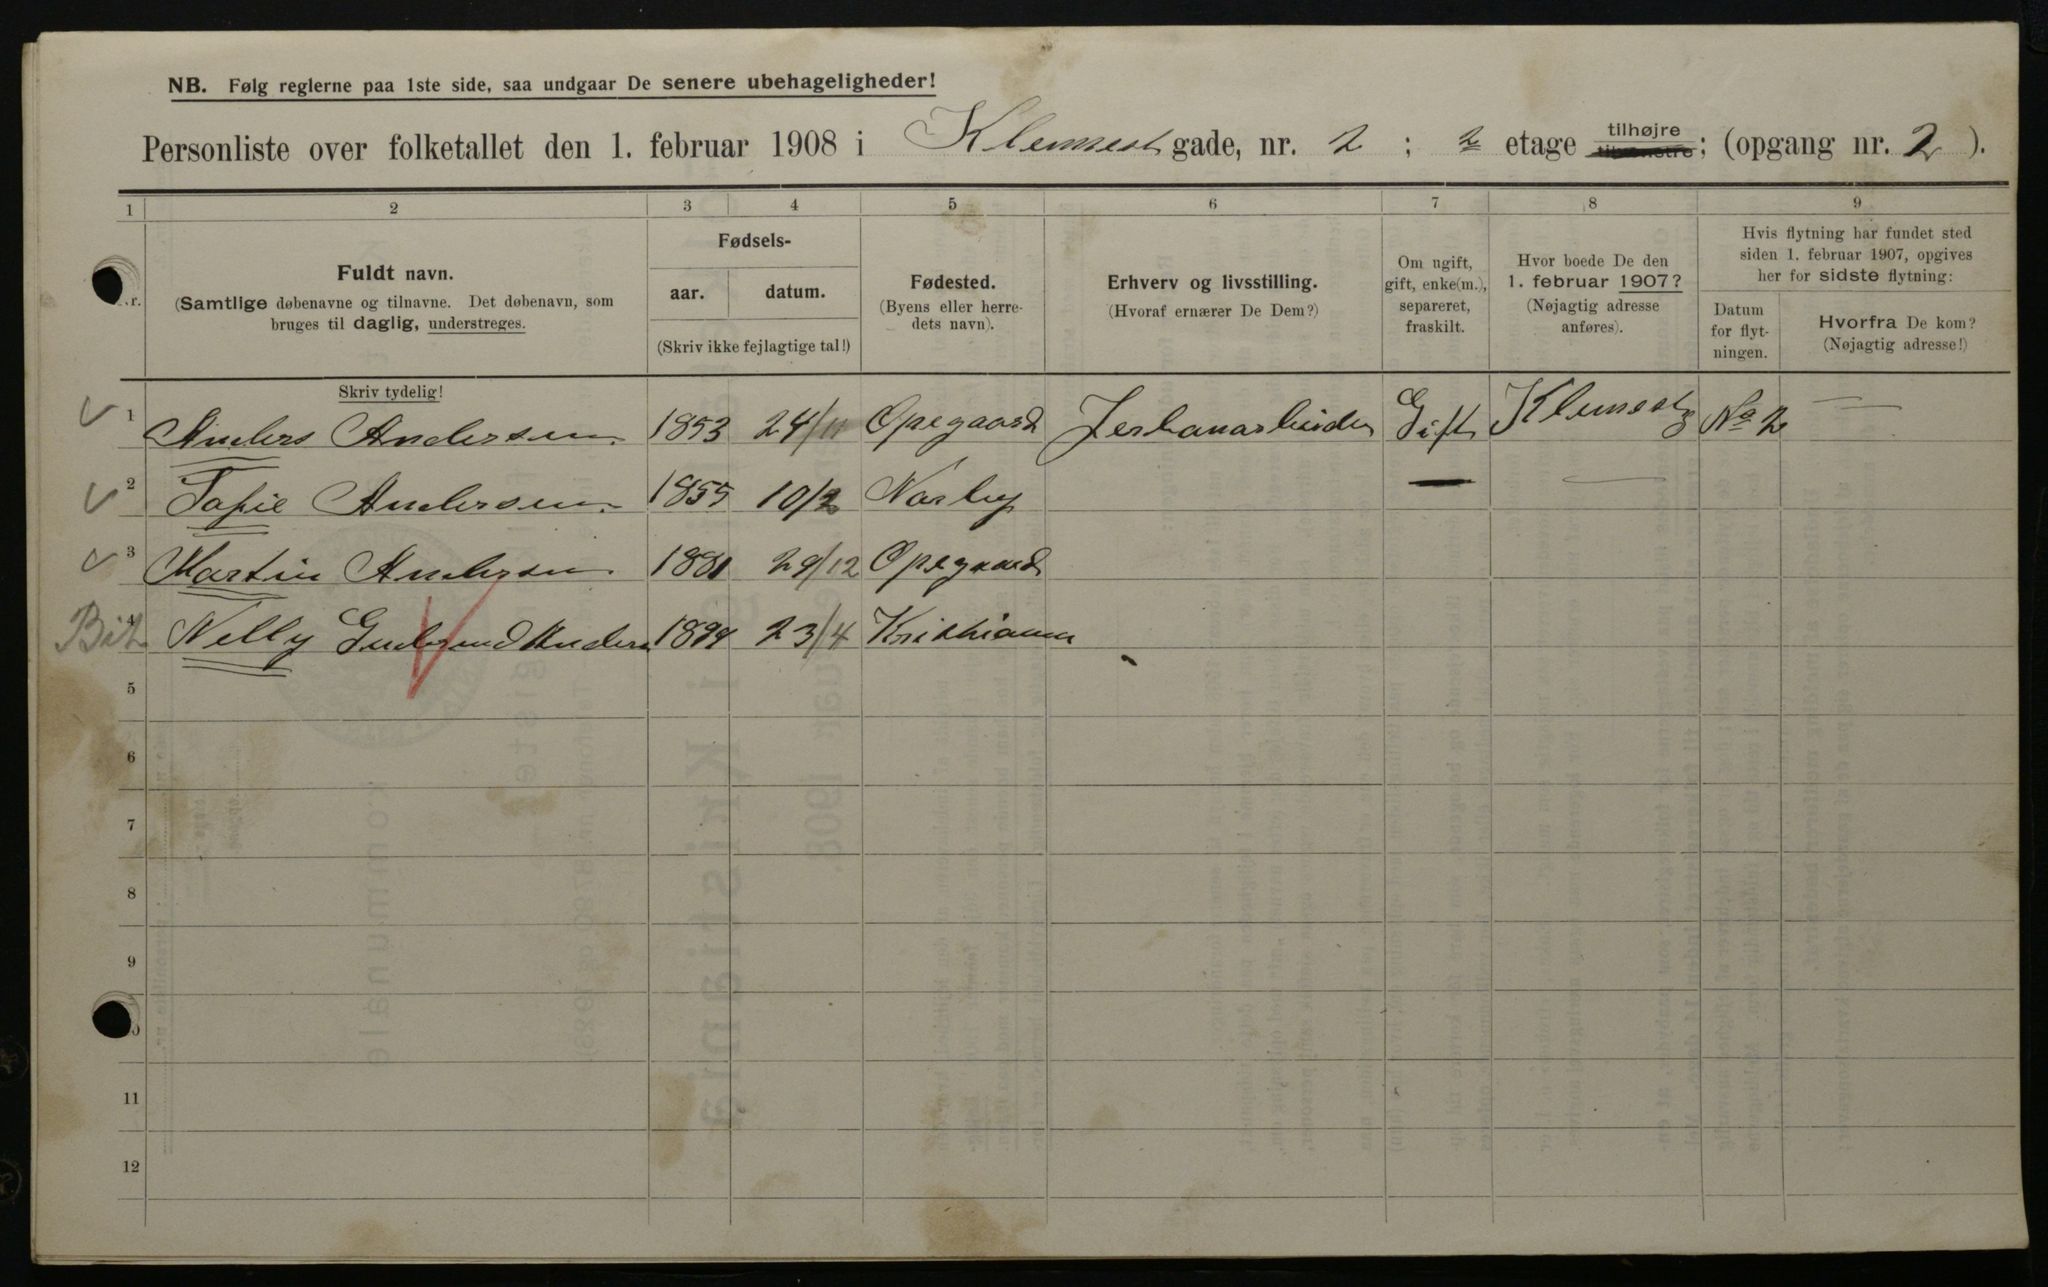 NB. Følg reglerne paa 1ste side, saa undgaar De senere ubehageligheder!
Personliste over folketallet den 1. februar 1908 i Klemest gade, nr. 2 ; 2 etage tilhøjre tilvenstre; (opgang nr. 2 ).
1 2 3 4 5 6 7 8 9
Nr.
Fuldt navn.
(Samtlige døbenavne og tilnavne. Det døbenavn, som
bruges til daglig, understreges.
Fødsels-
aar. datum.
(Skriv ikke fejlagtige tal!)
Fødested.
(Byens eller herre-
dets navn).
Erhverv og livsstilling.
(Hvoraf ernærer De Dem?)
Om ugift,
gift, enke(m.),
separeret,
fraskilt.
Hvor boede De den
1. februar 1907?
(Nøjagtig adresse
anføres).
Hvis flytning har fundet sted
siden 1. februar 1907, opgives
her for sidste flytning:
Datum
for flyt-
ningen.
Hvorfra De kom?
(Nøjagtig adresse!)
Skriv tydelig!
1 Anders Andersen. 1853 24/11 Opegaard Jerbanarbeider Gift Klemestg No 2 —
2 Sofie Andersen. 1855 10/2 Norby — —
3 Martin Andersen. 1881 29/12 Opegaard
Bit. 4 Nelly Anders 1894 23/4 Kristiania
5
6
7
8
9
10
11
12